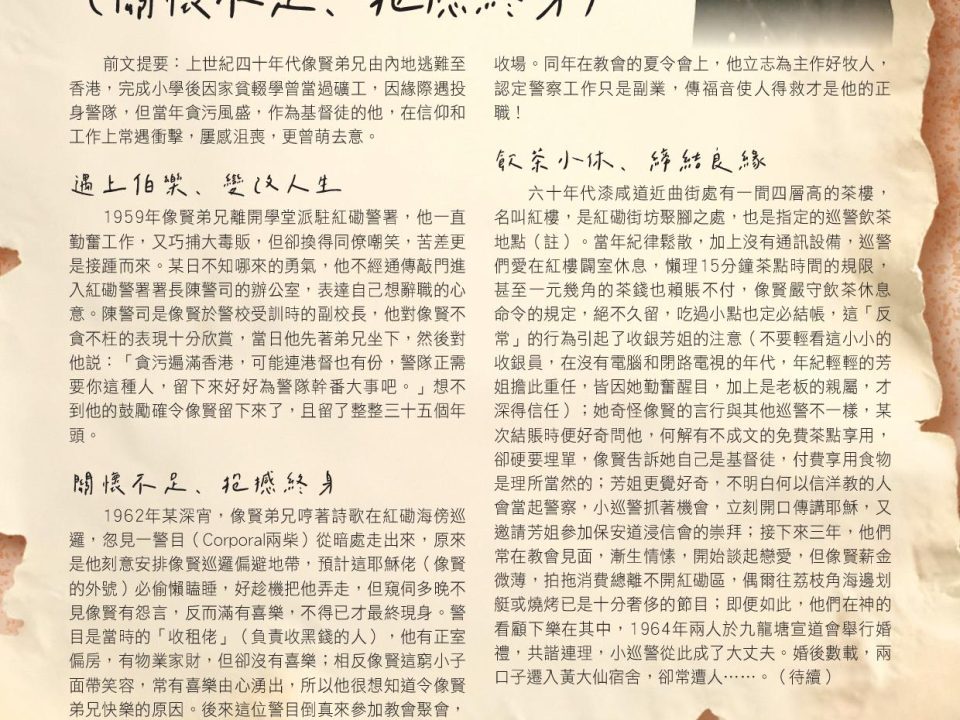 (關懷不足、抱憾終身)
前文提要：上世紀四十年代像賢弟兄由內地逃難至
香港，完成小學後因家貧輟學曾當過礦工，因緣際遇投
身警隊，但當年貪污風盛，作為基督徒的他，在信仰和
工作上常遇衝擊，屢感沮喪，更曾萌去意。
遇上伯樂、變改人生
1959年像賢弟兄離開學堂派駐紅磡警署，他一直
勤奮工作，又巧捕大毒販，但卻換得同僚嘲笑，苦差更
是接踵而來。某日不知哪來的勇氣，他不經通傳敲門進
入紅磡警署署長陳警司的辦公室，表達自己想辭職的心
意。陳警司是像賢於警校受訓時的副校長，他對像賢不
貪不枉的表現十分欣賞，當日他先著弟兄坐下，然後對
他説：「貪污遍滿香港，可能連港督也有份，警隊正需
要你這種人，留下來好好為警隊幹番大事吧。」想不
到他的鼓勵確令像賢留下來了，且留了整整三十五個年
頭。
關懷不足、抱憾終身
1962年某深宵，像賢弟兄哼著詩歌在紅磡海傍巡
邏，忽見一警目（Corporal兩柴）從暗處走出來，原來
是他刻意安排像賢巡邏偏避地帶，預計這耶穌佬（像賢
的外號）必偷懶瞌睡，好趁機把他弄走，但窺伺多晚不
見像賢有怨言，反而滿有喜樂，不得已才最終現身。警
目是當時的「收租佬」（負責收黑錢的人），他有正室
偏房，有物業家財，但卻沒有喜樂；相反像賢這窮小子
面帶笑容，常有喜樂由心湧出，所以他很想知道令像賢
弟兄快樂的原因。後來這位警目倒真來參加教會聚會，
收場。同年在教會的夏令會上，他立志為主作好牧人，
認定警察工作只是副業，傳福音使人得救才是他的正
職！
飲茶小休、締結良緣
六十年代漆咸道近曲街處有一間四層高的茶樓，
名叫紅樓，是紅磡街坊聚腳之處，也是指定的巡警飲茶
地點（註）。當年紀律鬆散，加上沒有通訊設備，巡警
們愛在紅樓闢室休息，懶理15分鐘茶點時間的規限，
甚至一元幾角的茶錢也賴賬不付，像賢嚴守飲茶休息
命令的規定，絕不久留，吃過小點也定必結帳，這「反
常」的行為引起了收銀芳姐的注意（不要輕看這小小的
收銀員，在沒有電腦和閉路電視的年代，年紀輕輕的芳
姐擔此重任，皆因她勤奮醒目，加上是老板的親屬，才
深得信任）；她奇怪像賢的言行與其他巡警不一樣，某
次結賬時便好奇問他，何解有不成文的免費茶點享用，
卻硬要埋單，像賢告訴她自己是基督徒，付費享用食物
是理所當然的；芳姐更覺好奇，不明白何以信洋教的人
會當起警察，小巡警抓著機會，立刻開口傳講耶穌，又
邀請芳姐參加保安道浸信會的崇拜；接下來三年，他們
常在教會見面，漸生情愫，開始談起戀愛，但像賢薪金
微薄，拍拖消費總離不開紅磡區，偶爾往荔枝角海邊划
艇或燒烤已是十分奢侈的節目；即便如此，他們在神的
看顧下樂在其中，1964年兩人於九龍塘宣道會舉行婚
禮，共諧連理，小巡警從此成了大丈夫。婚後數載，兩
口子遷入黃大仙宿舍，卻常遭人⋯⋯。（待續）